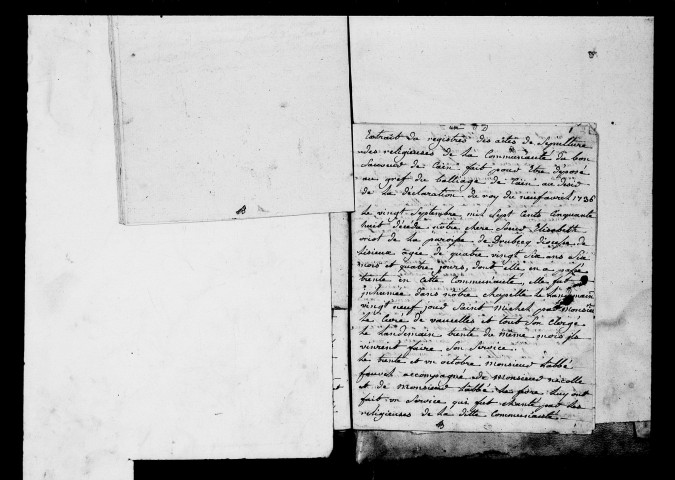 Extrait du registre des actes de sepulture
des religieuses de la Communauté du bon
Sauveur de Caen fait pour être déposé
au gref du balliage de Caen au desir
de la déclaration du roy du neuf avril 1736
le vingt Septembre mil Sept Cents Cinquante
huit décéda notre chere Soeur Elisabeth
oriot de la paroisse de
Lisieux âgée de quatre vingt Six ans Six
mois et quatre jours, dont elle en a passé
trente en cette Communauté, elle fut
inhumée dans notre Chapelle le landemain
vingt neuf jour Saint Michel par Monsieur
le Curé de vaucelles et tout Son Clergé
le landemain trente du même mois ils
vinrent faire Son Service.
le trente et un octobre monsieur l'abbé
fauvel accompagné de Monsieur nicolle
et de monsieur l'abbé luy ont
fait un Service qui fut chanté par les
religieuses de la ditte Communauté